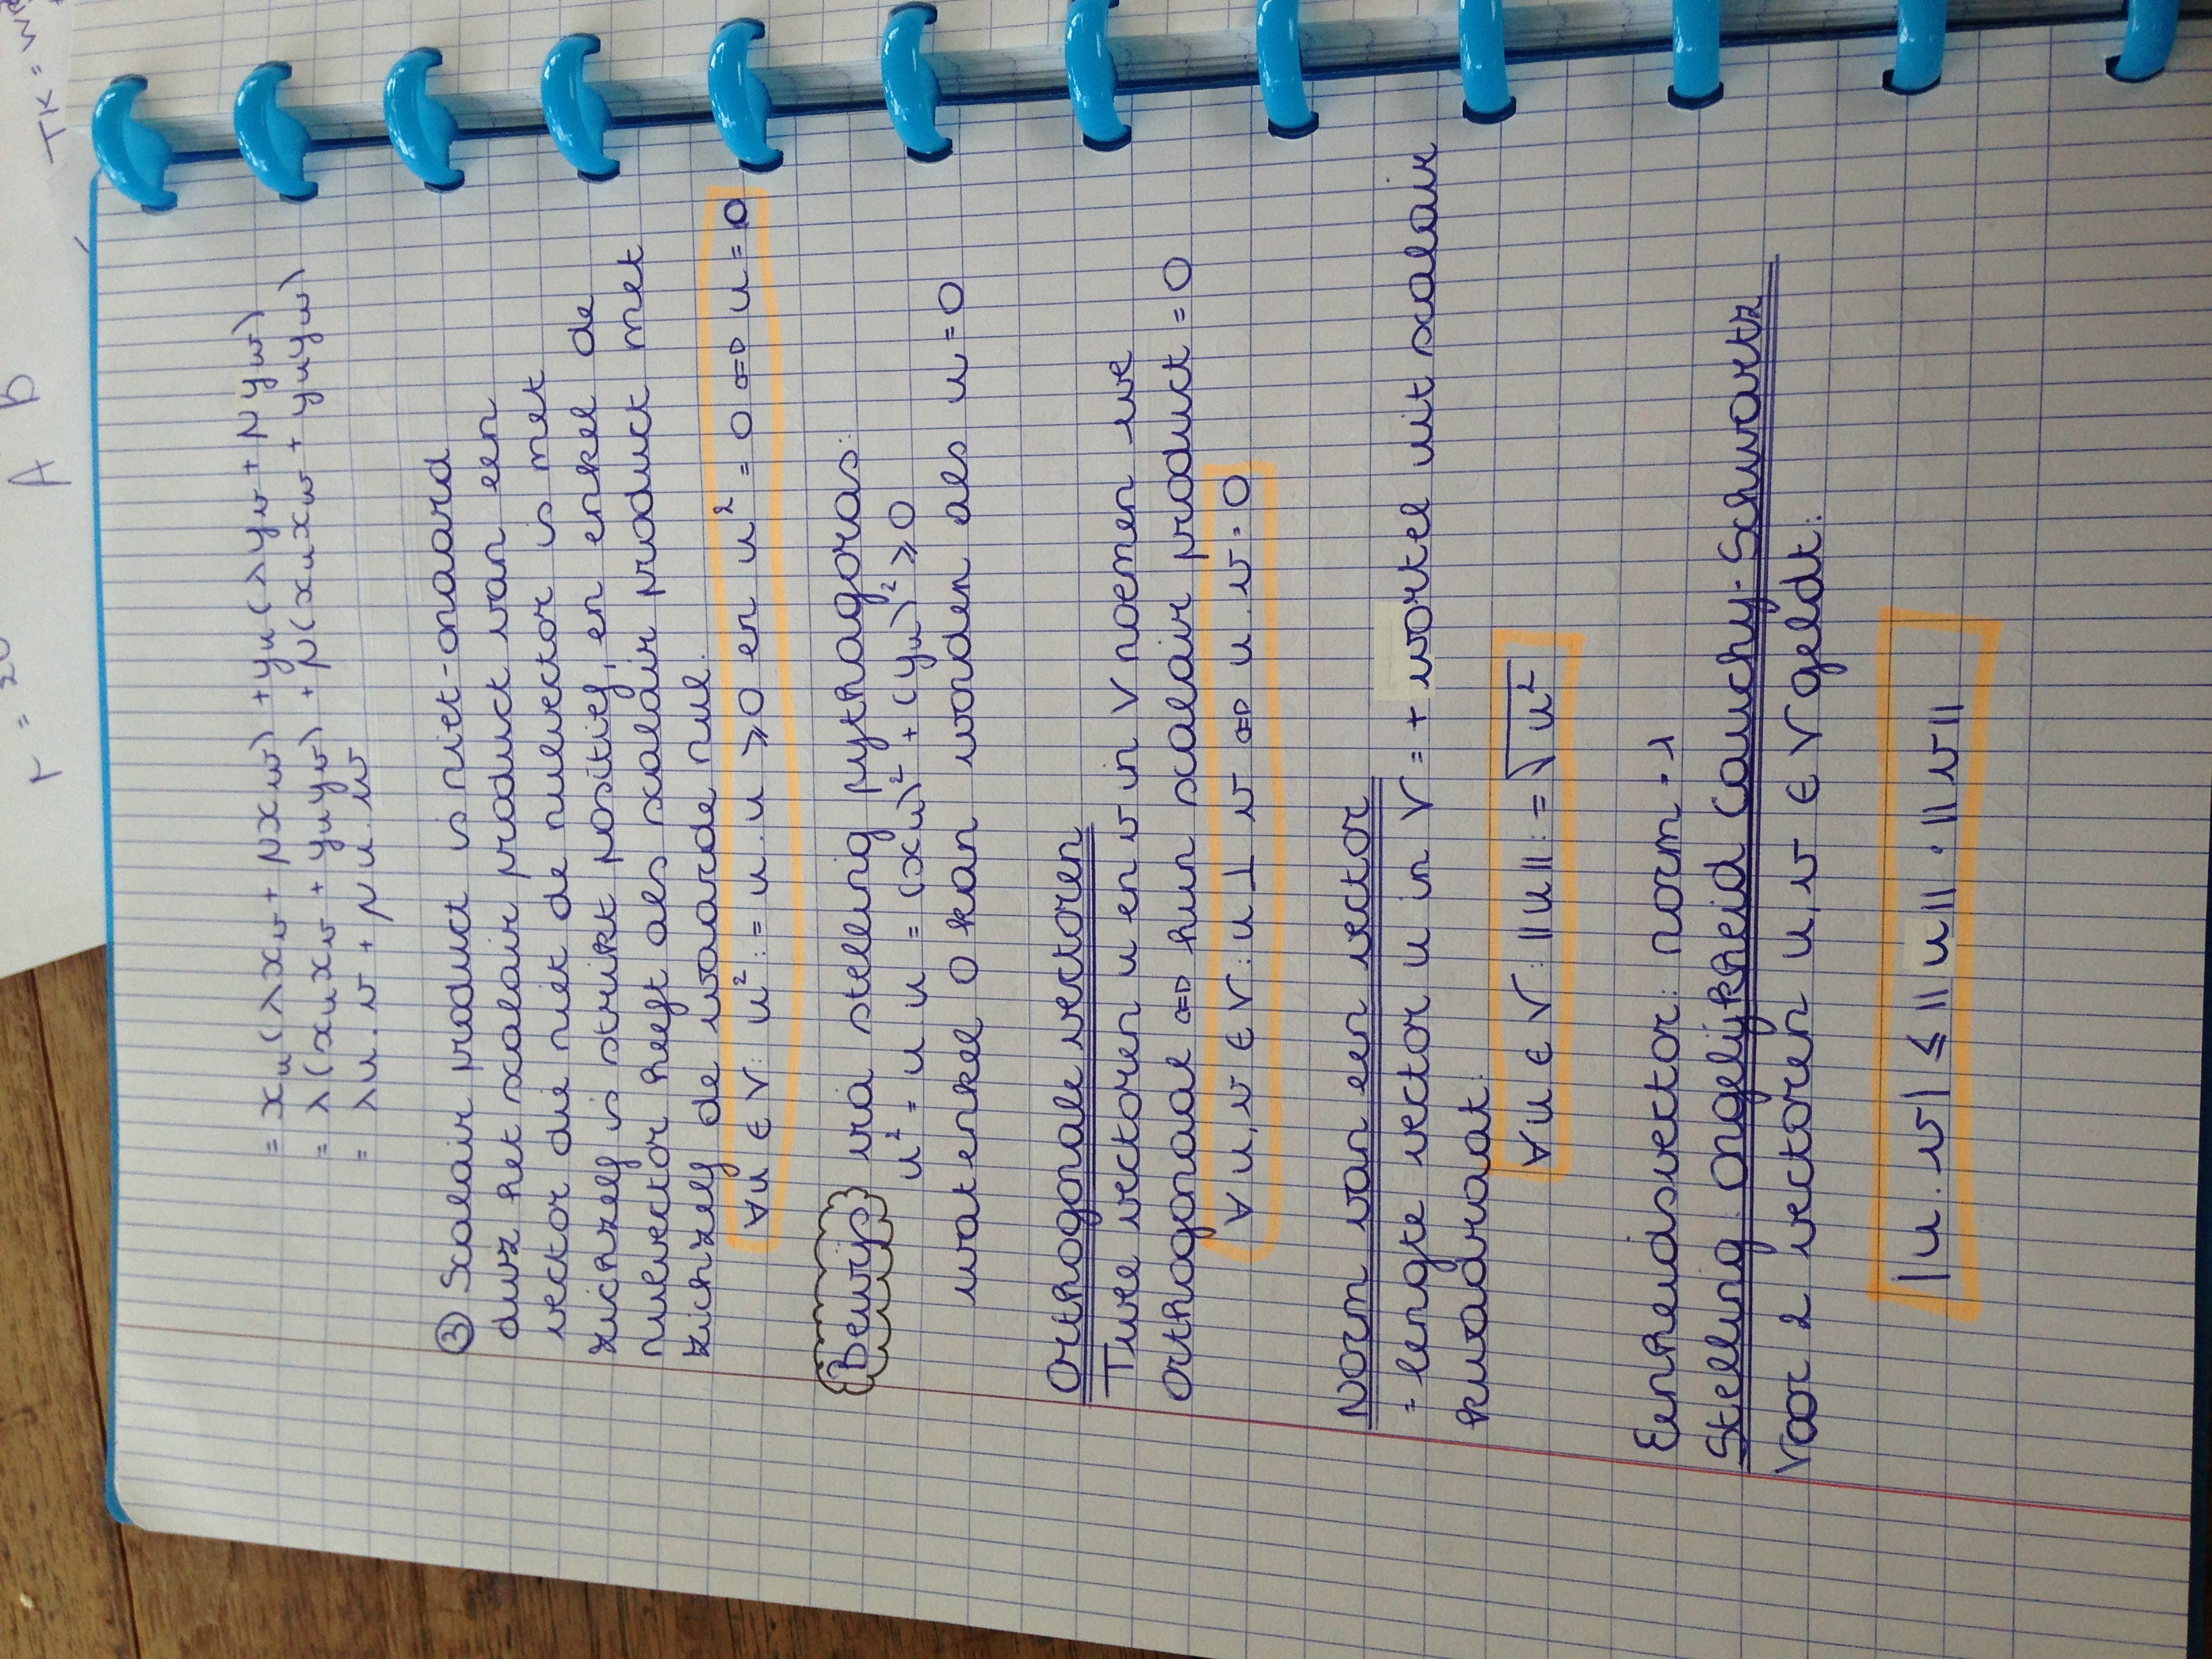 = x_u(λx_v + μx_w) + y_u(λy_v + μy_w)
= λ(x_u x_v + y_u y_v) + μ(x_u x_w + y_u y_w)
= λu.v + μ u.w
③ Scalair product is niet-ontaard
dwz het scalair product van een
vector die niet de nulvector is met
zichzelf is strikt positief, en enkel de
nulvector heeft als scalair product met
zichzelf de waarde nul.
∀u ∈ V: u² := u.u ≥ 0 en u² = 0 ⇔ u = 0
Bewijs via stelling pythagoras:
u² = u u = (x_u)² + (y_u)² ≥ 0
wat enkel 0 kan worden als u = 0
Orthogonale vectoren
Twee vectoren u en v in V noemen we
orthogonaal ⇔ hun scalair product = 0
∀ u,v ∈ V: u ⊥ v ⇔ u.v = 0
Norm van een vector
= lengte vector u in V = + wortel uit scalair
kwadraat.
∀u ∈ V: ||u|| := √u²
Eenheidsvector: norm = 1
Stelling: Ongelijkheid Cauchy-Schwartz
Voor 2 vectoren u,v ∈ V geldt:
|u.v| ≤ ||u|| . ||v||
A